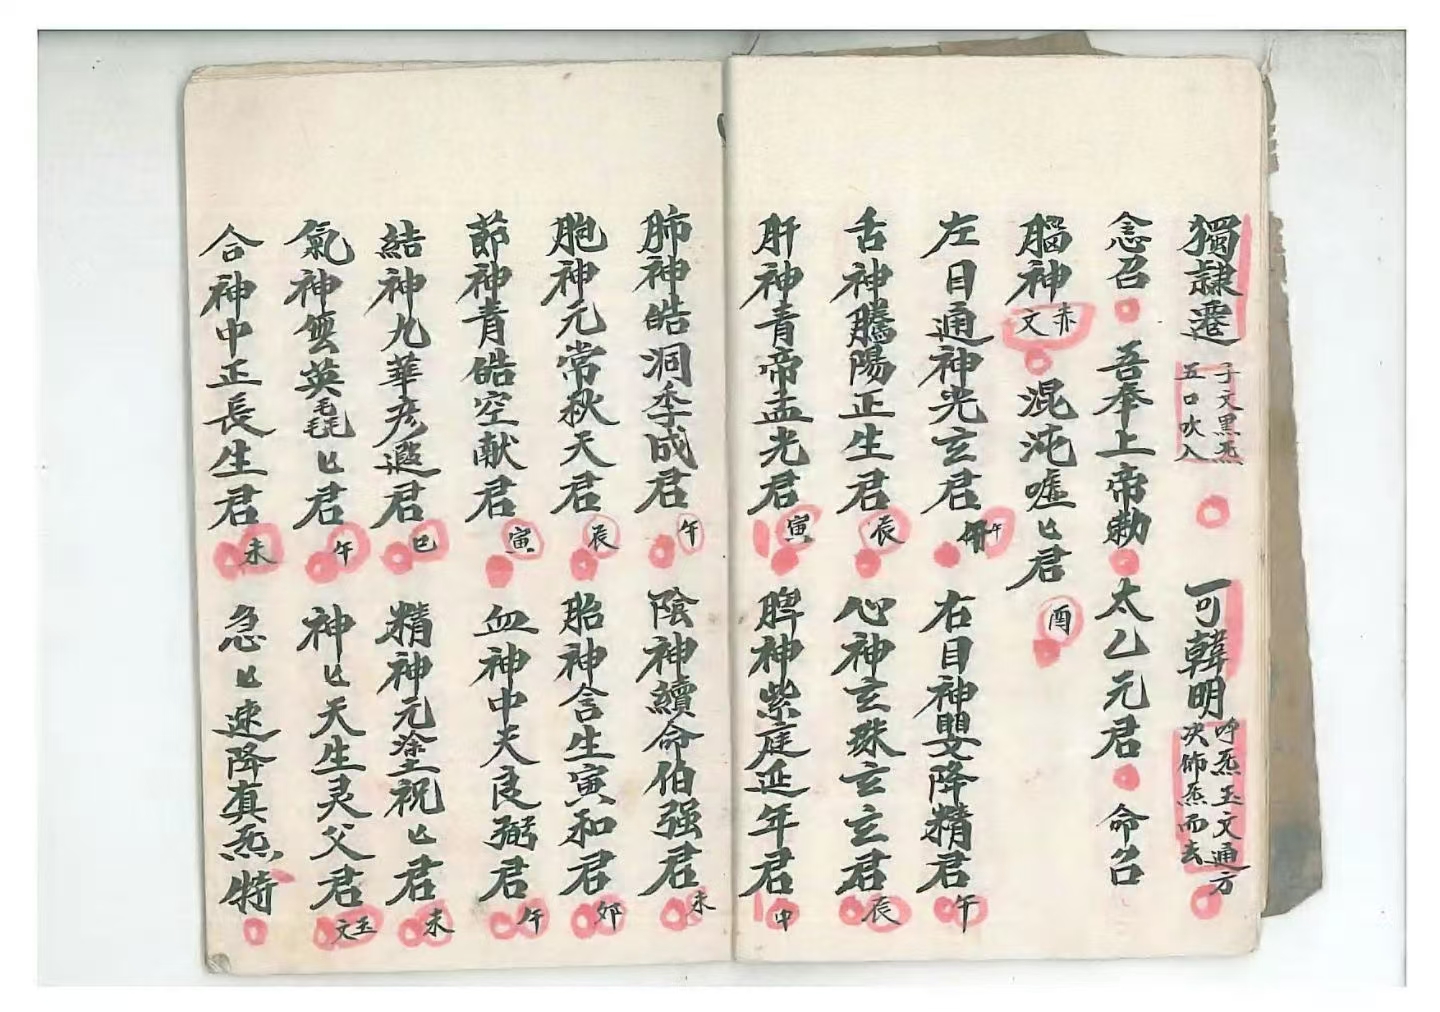 獨隷遷 子文黑炁 五口吹入 可韓明 呼炁玉文通方 次佈炁而去
念召 吾奉上帝勅 太乙元君 命召
腦神 赤文 混沌嘘〻君 酉
左目通神光玄君 午 右目神嬰降精君 午
舌神騰陽正生君 辰 心神玄珠玄玄君 辰
肝神青帝孟光君 寅 脾神紫庭延年君 中
肺神皓洞季成君 午 陰神續命伯强君 未
胞神元常秋天君 辰 胎神含生寅和君 卯
節神青皓空献君 寅 血神中夫良弼君 午
結神九華彦遐君 巳 精神元塗祝〻君 未
氣神雲英毳〻君 午 神〻天生灵父君 玉文
合神中正長生君 未 急〻速降真炁 特